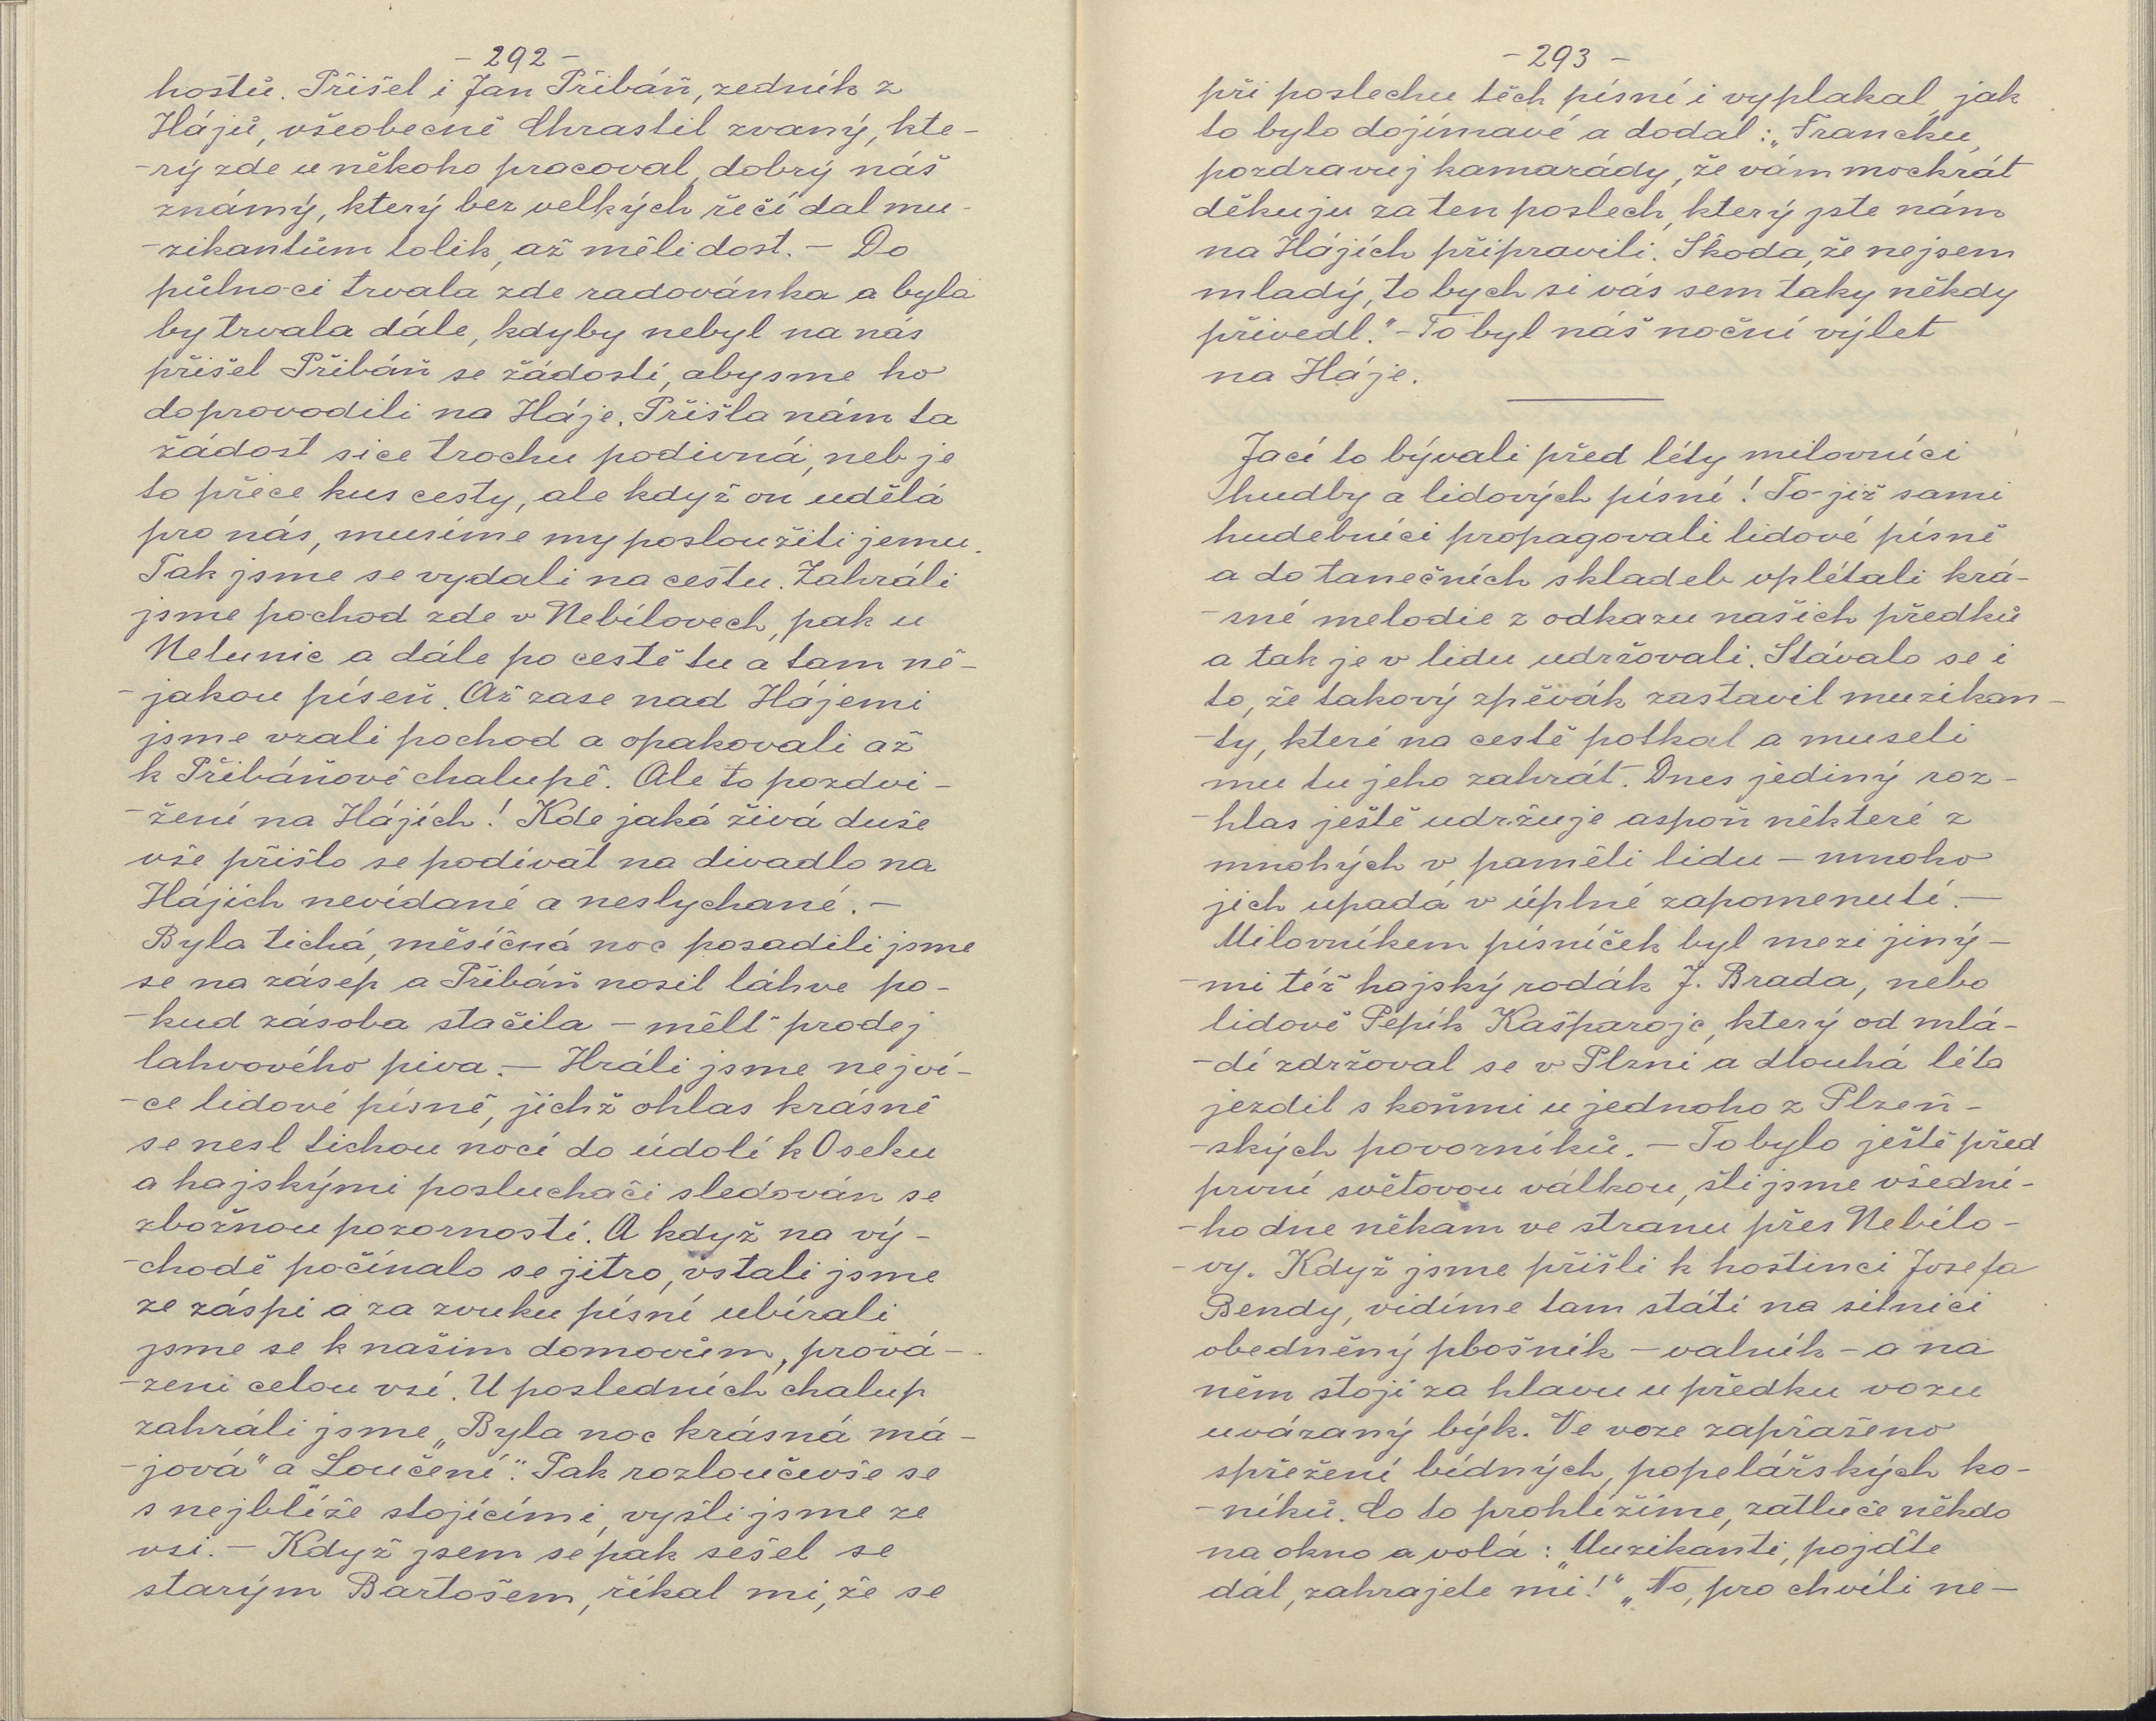 - 292 -
hostů. Přišel i Jan Přibáň, zedník z
Hájů, všeobecně Chrastil zvaný, kte-
-rý zde u někoho pracoval, dobrý náš
známý, který bez velkých řečí dal mu-
-zikantům tolik, až měli dost. - Do
půlnoci trvala zde radovánka a byla
by trvala dále, kdyby nebyl na nás
přišel Přibáň se žádostí, abysme ho
doprovodili na Háje. Přišla nám ta
žádost sice trochu podivná, neb je
to přece kus cesty, ale když on udělá
pro nás, musíme my posloužiti jemu.
Tak jsme se vydali na cestu. Zahráli
jsme pochod zde v Nebílovech, pak u
Netunic a dále po cestě tu a tam ně-
-jakou píseň. Až zase nad Hájemi
jsme vzali pochod a opakovali až
k Přibáňově chalupě. Ale to pozdvi-
-žení na Hájích! Kde jaká živá duše
vše přišlo se podívat na divadlo na
Hájích nevídané a neslychané. -
Byla tichá, měsíčná noc posadili jsme
se na zásep a Přibáň nosil láhve po-
-kud zásoba stačila - mělť prodej
lahvového piva. - Hráli jsme nejví-
-ce lidové písně, jichž ohlas krásně
se nesl tichou nocí do údolí k Oseku
a hajskými posluchači sledován se
zbožnou pozorností. A když na vý-
-chodě počínalo se jitro, vstali jsme
ze záspi a za zvuku písní ubírali
jsme se k našim domovům, prová-
-zeni celou vsí. U posledních chalup
zahráli jsme „Byla noc krásná má-
-jová" a „Loučení". Pak rozloučivše se
s nejblíže stojícími, vyšli jsme ze
vsi. - Když jsem se pak sešel se
starým Bartošem, říkal mi, že se
- 293 -
při poslechu těch písní i vyplakal, jak
to bylo dojímavé a dodal: „Francku,
pozdravuj kamarády, že vám mockrát
děkuju za ten poslech, který jste nám
na Hájích připravili. Škoda, že nejsem
mladý, to bych si vás sem taky někdy
přivedl." - To byl náš noční výlet
na Háje.
Jací to bývali před léty milovníci
hudby a lidových písní! To již sami
hudebníci propagovali lidové písně
a do tanečních skladeb vplétali krá-
-sné melodie z odkazu našich předků
a tak je v lidu udržovali. Stávalo se i
to, že takový zpěvák zastavil muzikan-
-ty, které na cestě potkal a museli
mu tu jeho zahrát. Dnes jediný roz-
-hlas ještě udržuje aspoň některé z
mnohých v paměti lidu - mnoho
jich upadá v úplné zapomenutí. -
Milovníkem písníček byl mezi jiný-
-mi též hajský rodák J. Brada, nebo
lidově Pepík Kašparojc, který od mlá-
-dí zdržoval se v Plzni a dlouhá léta
jezdil s koňmi u jednoho z Plzeň-
-ských povozníků. - To bylo ještě před
první světovou válkou, šli jsme všední-
-ho dne někam ve stranu přes Nebílo-
-vy. Když jsme přišli k hostinci Josefa
Bendy, vidíme tam státi na silnici
obedněný pbošník - valník - a na
něm stojí za hlavu u předku vozu
uvázaný býk. Ve voze zapřaženo
spřežení bídných, popelářských ko-
-níků. Co to prohlížíme, zatluče někdo
na okno a volá: „Muzikanti, pojďte
dál, zahrajete mi!" „No, pro chvíli ne-